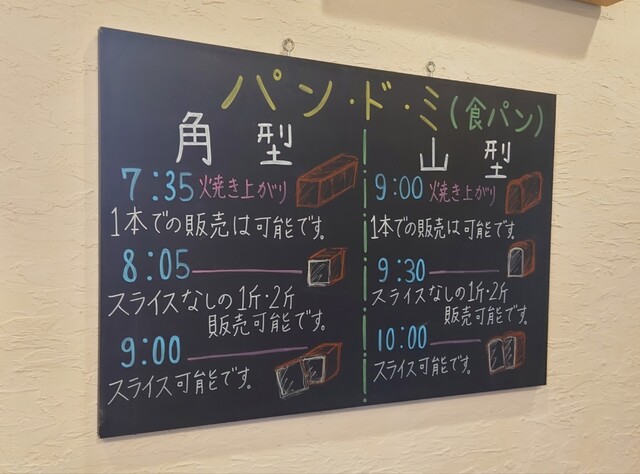 パン・ド・ミ(食パン)
角型
7:35 焼き上がり
1本での販売は可能です。
8:05
スライスなしの1斤・2斤
販売可能です。
9:00
スライス可能です。
山型
9:00 焼き上がり
1本での販売は可能です
9:30
スライスなしの1斤・2斤
販売可能です。
10:00
スライス可能です。